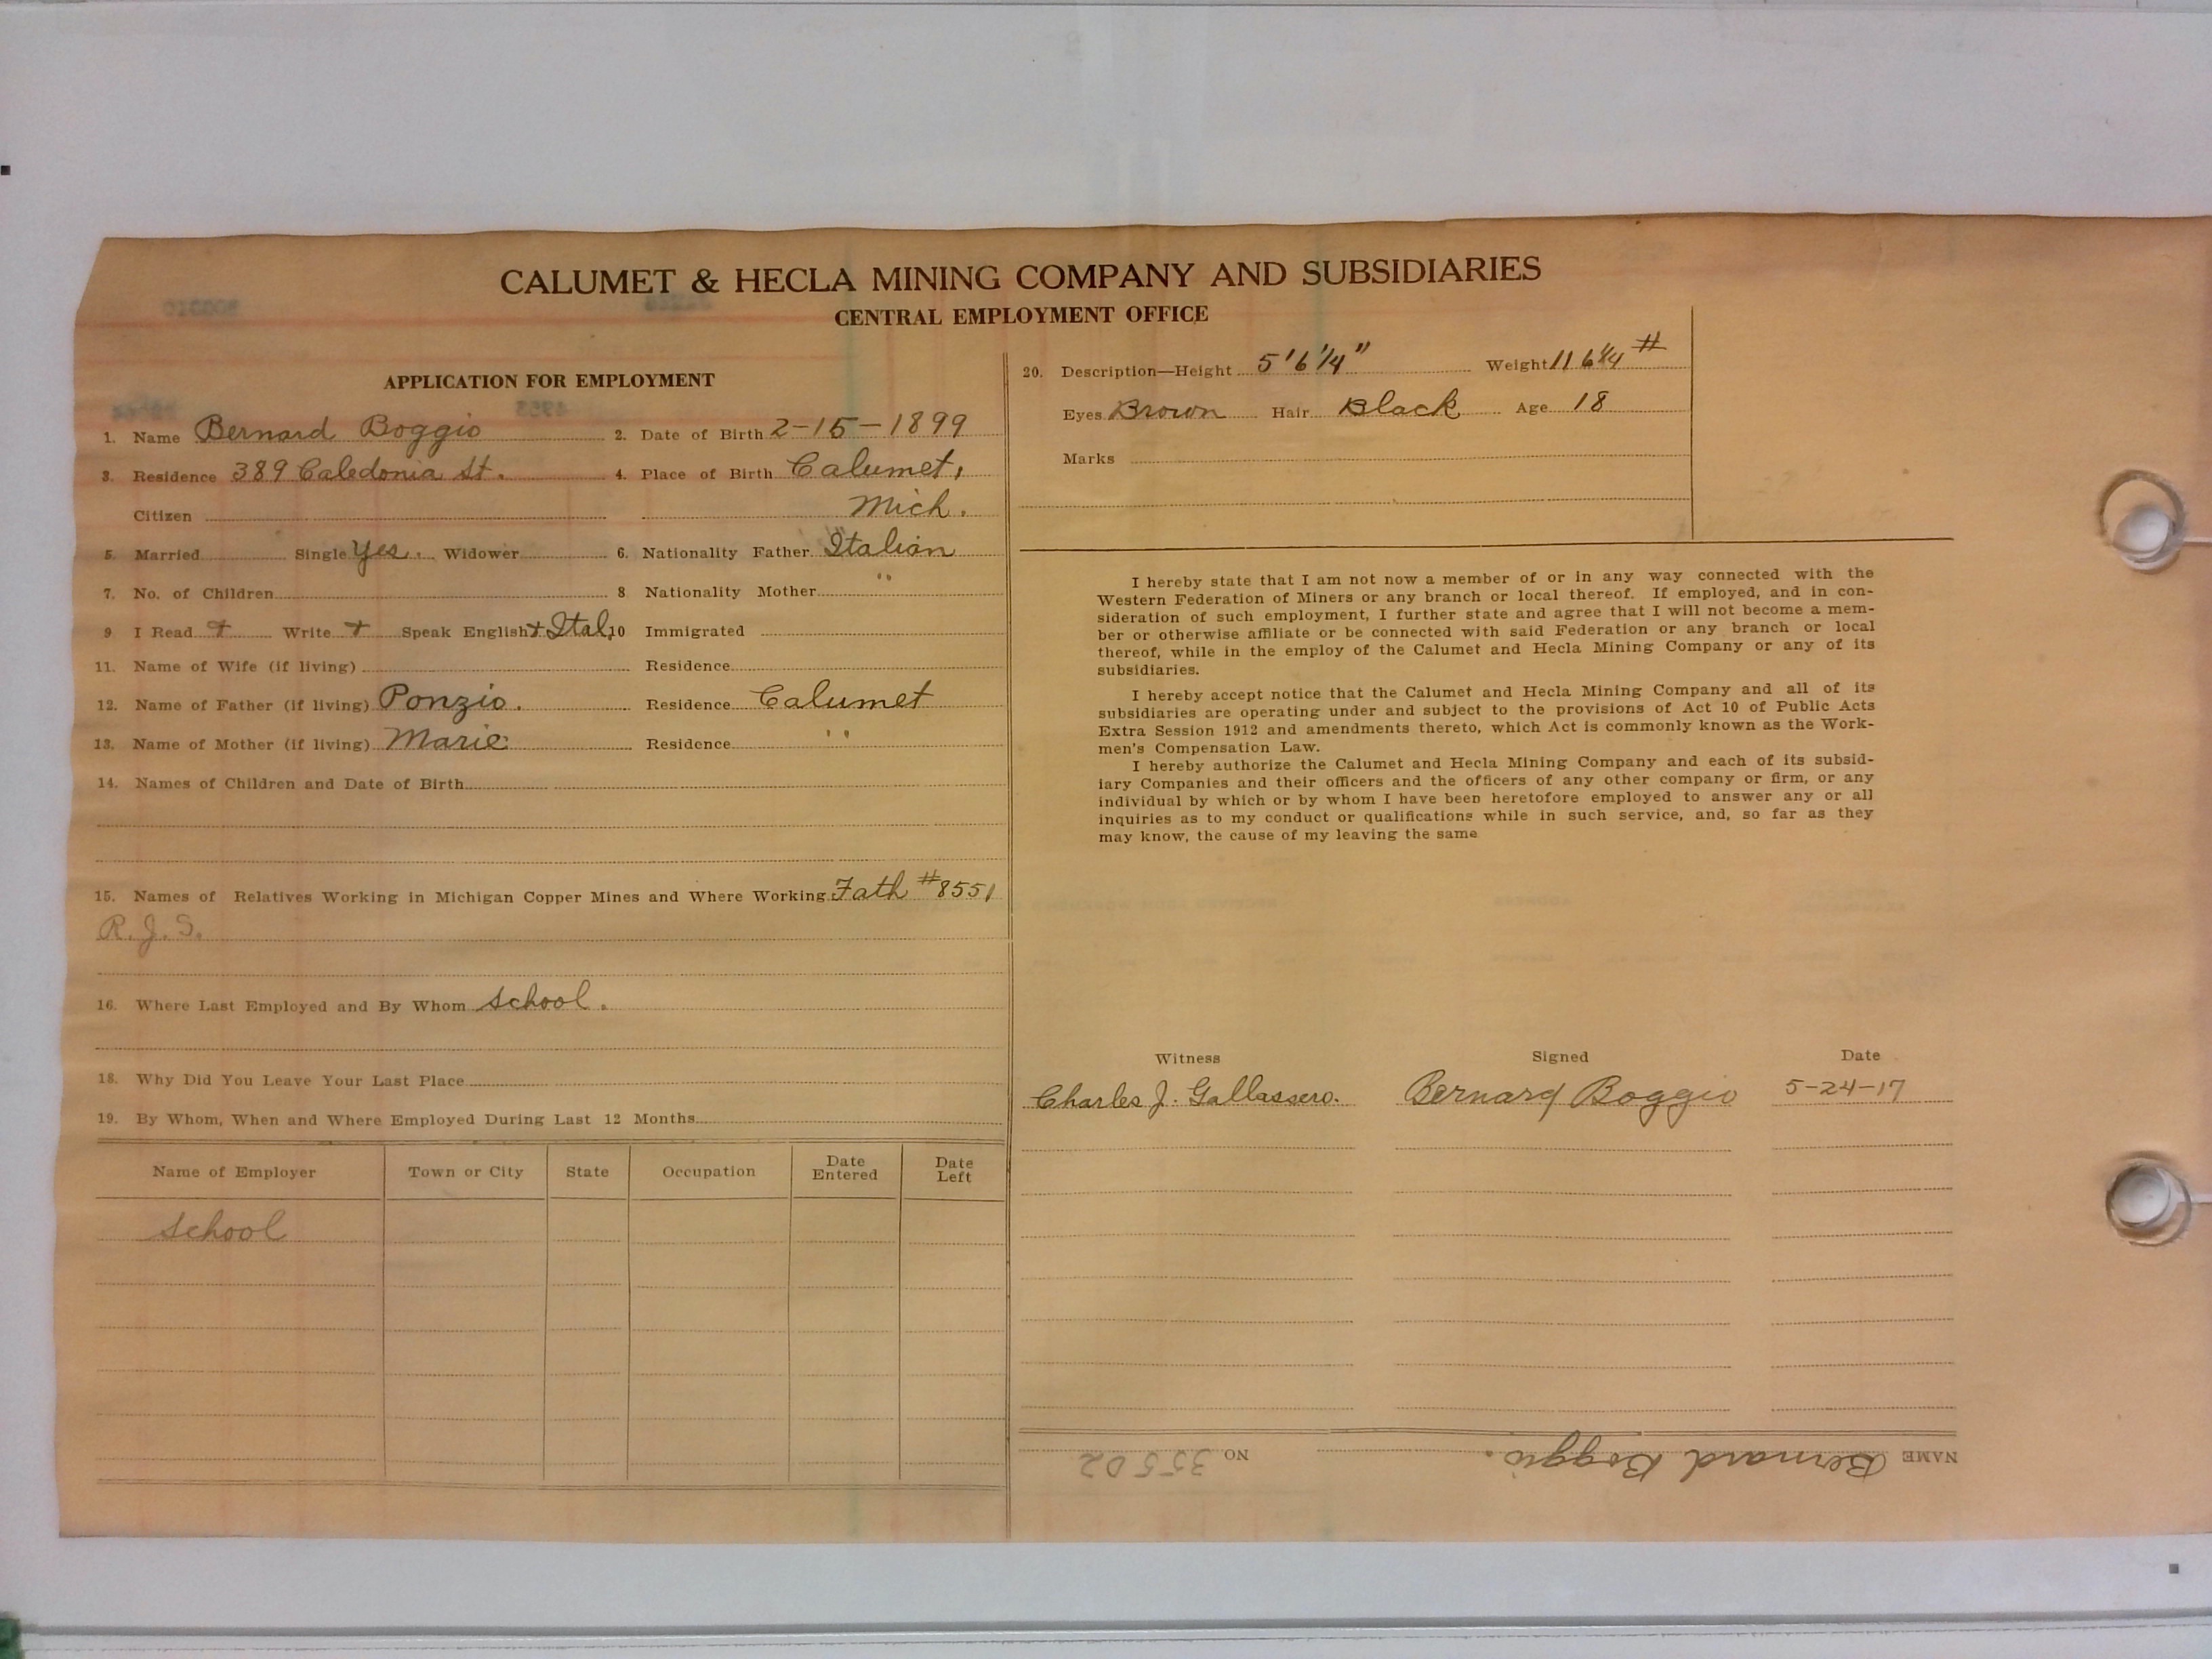 CALUMET & HECLA MINING COMPANY AND SUBSIDIARIES
CENTRAL EMPLOYMENT OFFICE
APPLICATION FOR EMPLOYMENT
1. Name Bernard Boggio 2. Date of Birth 2-15-1899
3. Residence 389 Caledonia St. 4. Place of Birth Calumet,
Citizen Mich.
5. Married Single Yes. Widower 6. Nationality Father Italian
7. No. of Children 8 Nationality Mother "
9 I Read + Write + Speak English + Ital. 10 Immigrated
11. Name of Wife (if living) Residence
12. Name of Father (if living) Ponzio. Residence Calumet
13. Name of Mother (if living) Marie Residence "
14. Names of Children and Date of Birth
15. Names of Relatives Working in Michigan Copper Mines and Where Working Fath #8551
R.J.S.
16. Where Last Employed and By Whom School.
18. Why Did You Leave Your Last Place
19. By Whom, When and Where Employed During Last 12 Months
Name of Employer Town or City State Occupation Date Entered Date Left
School
20. Description—Height 5'6 1/4" Weight 116 1/4 #
Eyes Brown Hair Black Age 18
Marks
I hereby state that I am not now a member of or in any way connected with the
Western Federation of Miners or any branch or local thereof. If employed, and in con-
sideration of such employment, I further state and agree that I will not become a mem-
ber or otherwise affiliate or be connected with said Federation or any branch or local
thereof, while in the employ of the Calumet and Hecla Mining Company or any of its
subsidiaries.
I hereby accept notice that the Calumet and Hecla Mining Company and all of its
subsidiaries are operating under and subject to the provisions of Act 10 of Public Acts
Extra Session 1912 and amendments thereto, which Act is commonly known as the Work-
men's Compensation Law.
I hereby authorize the Calumet and Hecla Mining Company and each of its subsid-
iary Companies and their officers and the officers of any other company or firm, or any
individual by which or by whom I have been heretofore employed to answer any or all
inquiries as to my conduct or qualifications while in such service, and, so far as they
may know, the cause of my leaving the same
Witness Signed Date
Charles J. Gallassero. Bernard Boggio 5-24-17
NAME Bernard Boggio. NO 35502